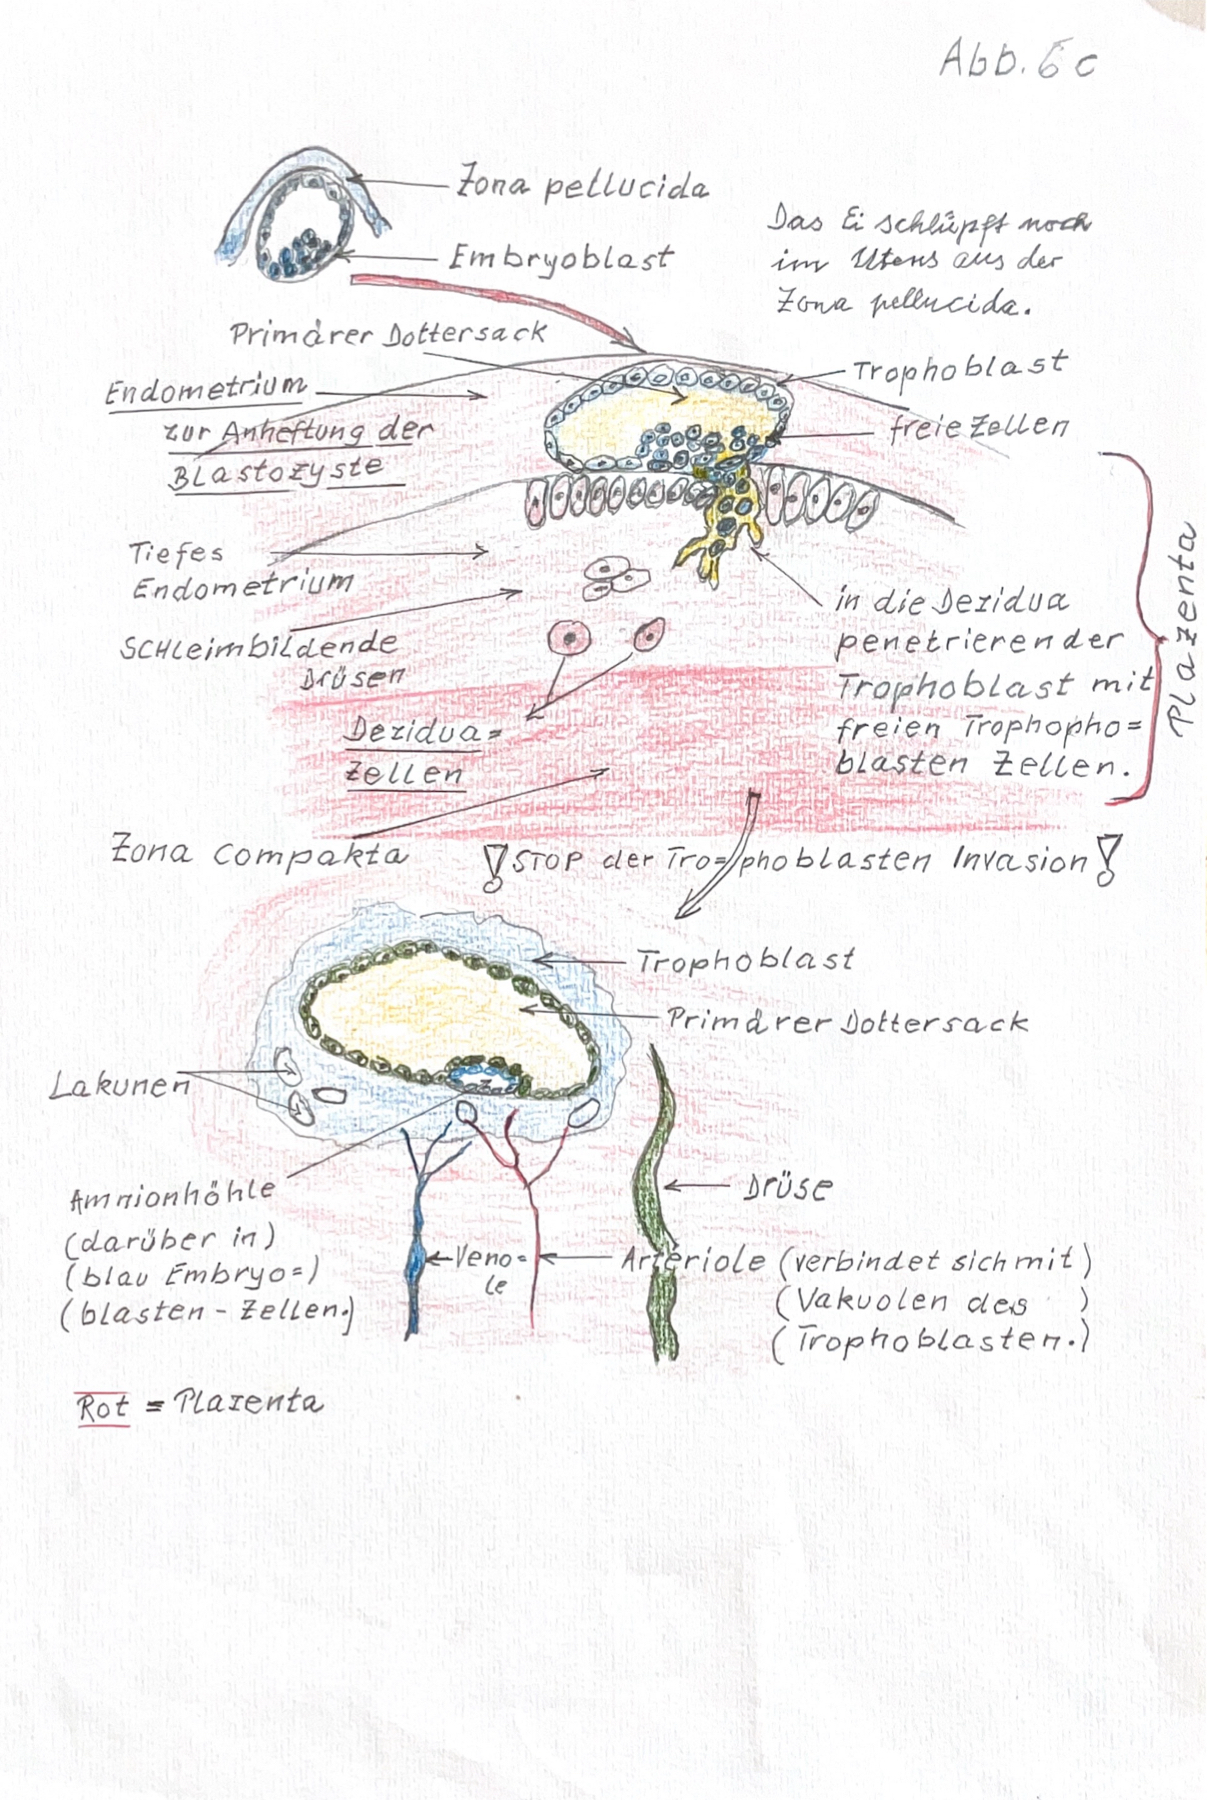 Abb. 6 c
Zona pellucida
Das Ei schlüpft noch
im Uterus aus der
Zona pellucida.
Embryoblast
Primärer Dottersack
Trophoblast
Endometrium
zur Anheftung der
Blastozyste
freie Zellen
Tiefes
Endometrium
Plazenta
in die Dezidua
penetrierender
Trophoblast mit
freien Trophopho=
blasten Zellen.
SCHLeimbildende
Drüsen
Dezidua=
Zellen
Zona compakta
! STOP der Tro=phoblasten Invasion !
Trophoblast
Primärer Dottersack
Lakunen
Amnionhöhle
(darüber in)
(blau Embryo=)
(blasten-Zellen.)
Drüse
Veno=
le
Arteriole (verbindet sich mit)
(Vakuolen des )
(Trophoblasten.)
Rot = Plazenta